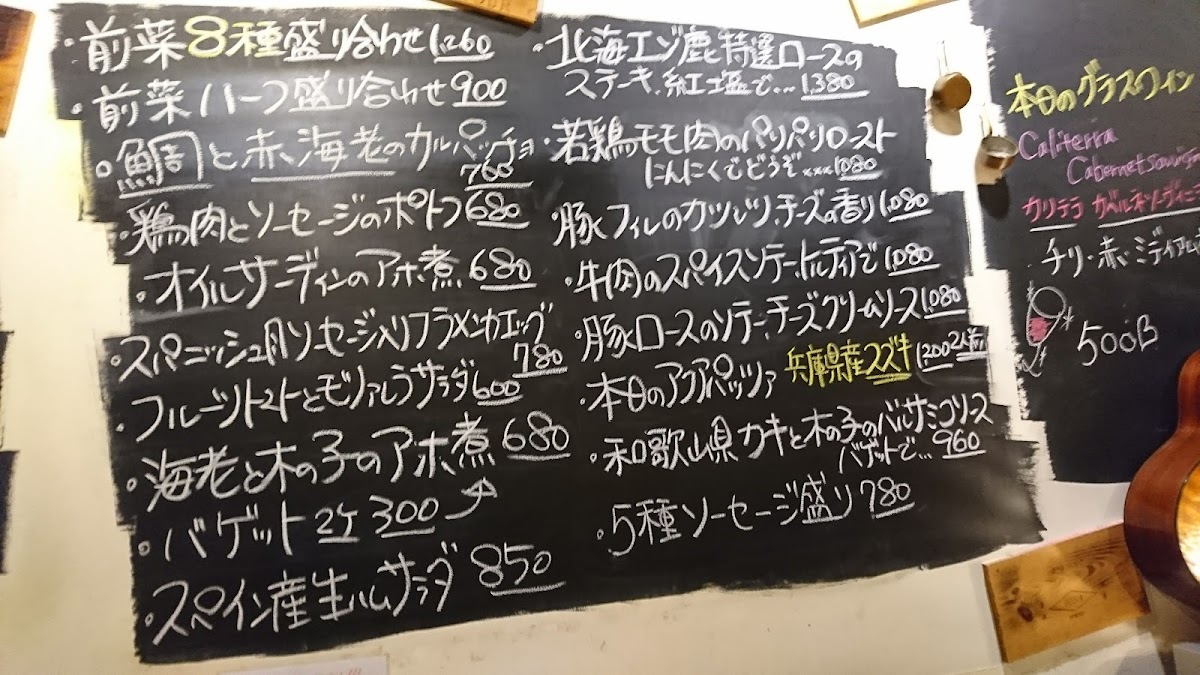 ・前菜8種盛り合わせ1,260
・前菜ハーフ盛り合わせ900
・鯛と赤海老のカルパッチョ
760
・鶏肉とソーセージのポトフ680
・オイルサーディンのアホ煮680
・スパニッシュ風ソーセージ入りフラメンカエッグ
780
・フルーツトマトとモッツァレラサラダ600
・海老と木の子のアホ煮680
・バゲット2ケ300
・スペイン産生ハムサラダ850
・北海エゾ鹿特選ロースの
ステーキ、紅塩で…1,380
・若鶏モモ肉のパリパリロースト
にんにくでどうぞ…1080
・豚フィレのカツレツ、チーズの香り1,080
・牛肉のスパイスソテー、トルティアで1,080
・豚ロースのソテー、チーズクリームソース1,080
・本日のアクアパッツァ 兵庫県産スズキ1,200 2人前
・和歌山県カキと木の子のバルサミコソース
バゲットで…960
・5種ソーセージ盛り780
本日のグラスワイン
Caliterra
Cabernet
カリテラ カベルネソーヴィニ
チリ・赤・ミディアム
500B